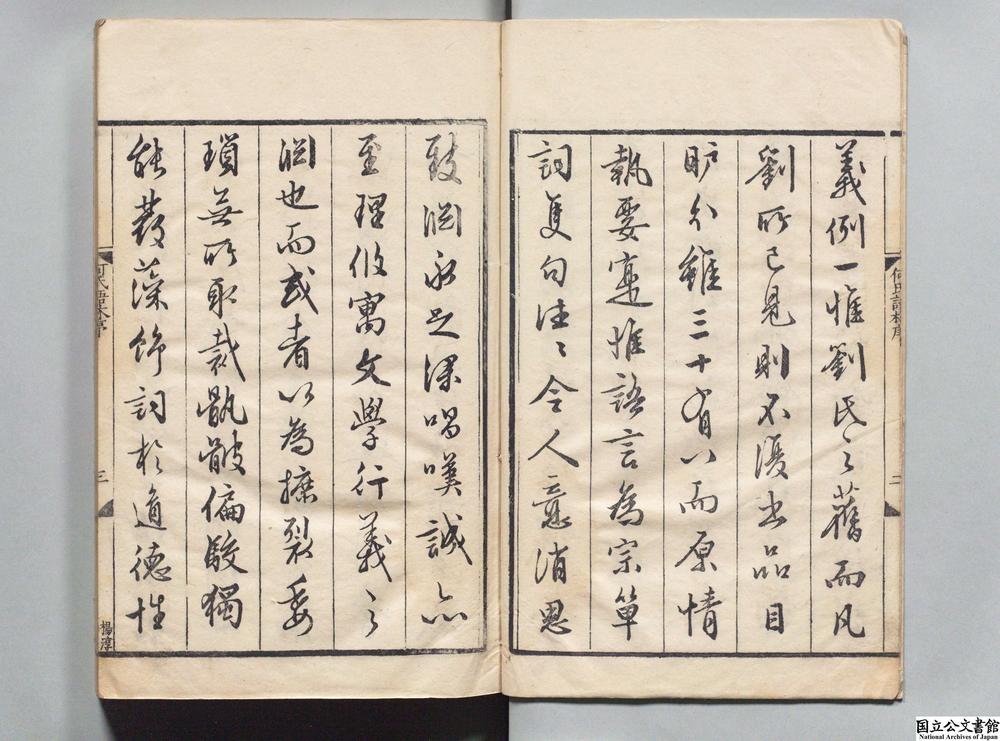 義例一惟劉氏之舊而凡
劉所已見則不復出品目
臚分雖三十有八而原情
執要寔惟語言為宗單
詞隻句往往令人意消思
致淵永足深唱嘆誠亦
至理攸寓文學行義之
淵也而或者以為摭裂委
瑣無所取裁骫骳偏駁獨
能發藻飾詞於道德性
何氏語林序
二
何氏語林序
三
楊淳
国立公文書館
National Archives of Japan